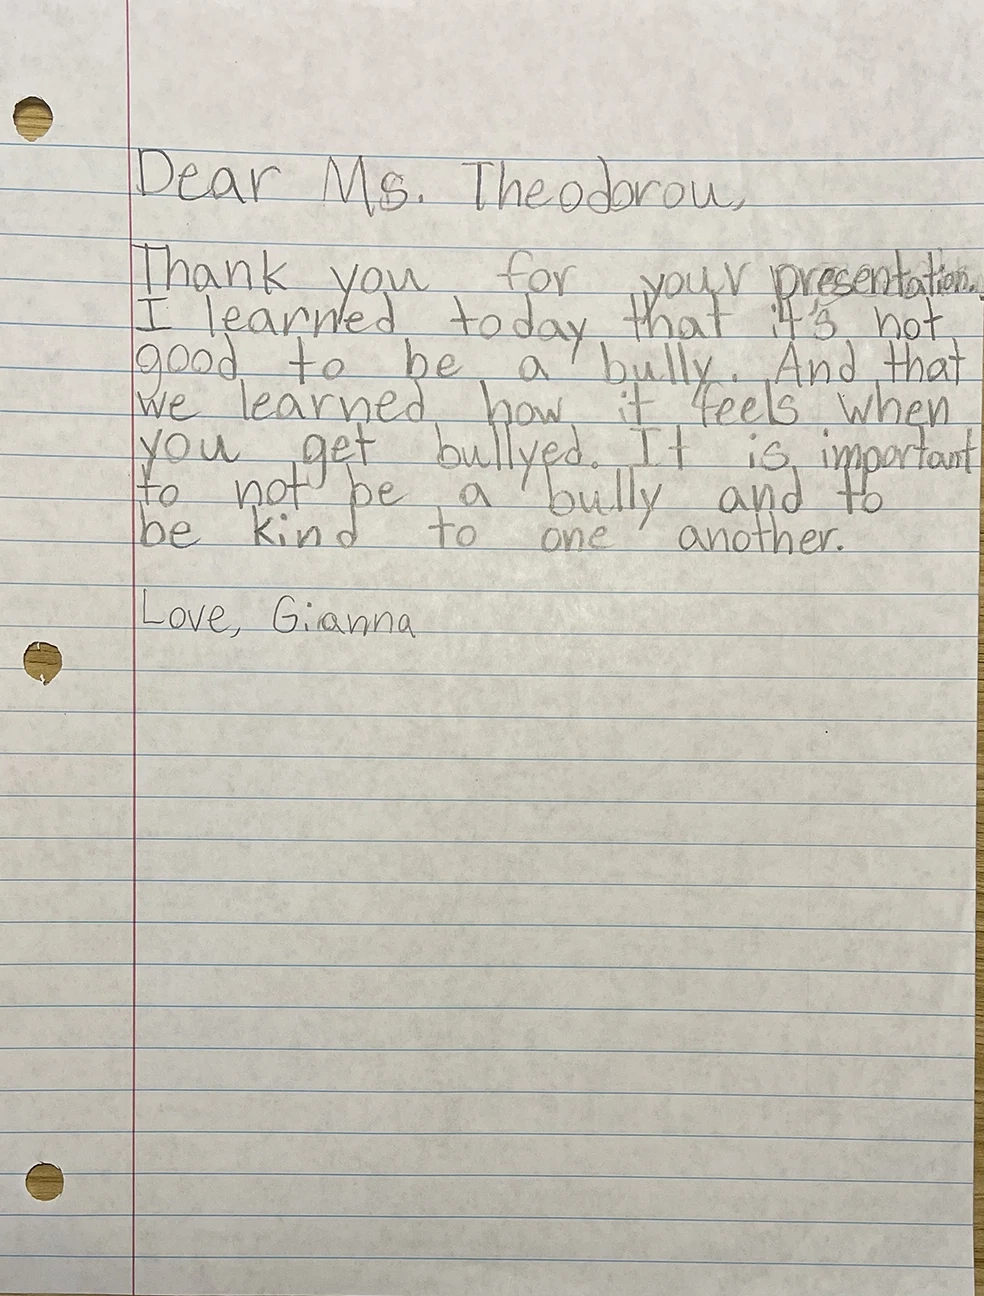 Dear Ms. Theodorou,
Thank you for your presentation.
I learned today that it's not
good to be a bully. And that
we learned how it feels when
you get bullyed. It is important
to not be a bully and to
be kind to one another.
Love, Gianna